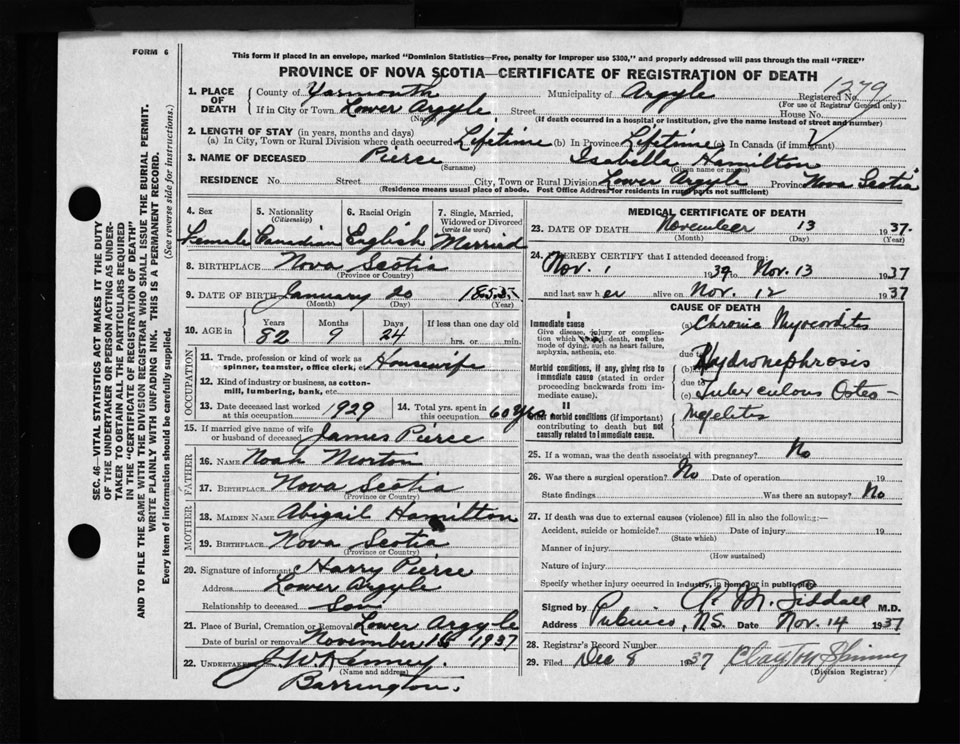 FORM 6
This form if placed in an envelope, marked "Dominion Statistics—Free, penalty for improper use $300," and properly addressed will pass through the mail "FREE"
PROVINCE OF NOVA SCOTIA—CERTIFICATE OF REGISTRATION OF DEATH
1279
1. PLACE OF DEATH County of Yarmouth Municipality of Argyle Registered No.
(For use of Registrar General only)
If in City or Town Lower Argyle Street House No.
(Name) (If death occurred in a hospital or institution, give the name instead of street and number)
2. LENGTH OF STAY (in years, months and days)
(a) In City, Town or Rural Division where death occurred Lifetime (b) In Province Lifetime (c) In Canada (if immigrant)
3. NAME OF DECEASED Pierce Isabella Hamilton
(Surname) (Given name or names)
RESIDENCE No. Street City, Town or Rural Division Lower Argyle Province Nova Scotia
(Residence means usual place of abode. Post Office Address for residents in rural parts not sufficient)
4. Sex Female
5. Nationality (Citizenship) Canadian
6. Racial Origin English
7. Single, Married, Widowed or Divorced (write the word) Married
8. BIRTHPLACE Nova Scotia
(Province or Country)
9. DATE OF BIRTH January 20 1855
(Month) (Day) (Year)
10. AGE in Years Months Days If less than one day old
82 9 24 hrs. or min.
OCCUPATION
11. Trade, profession or kind of work as spinner, teamster, office clerk, etc. Housewife
12. Kind of industry or business, as cotton-mill, lumbering, bank, etc.
13. Date deceased last worked at this occupation 1929
14. Total yrs. spent in this occupation 60 yrs
15. If married give name of wife or husband of deceased James Pierce
FATHER
16. NAME Noah Morton
17. BIRTHPLACE Nova Scotia
(Province or Country)
MOTHER
18. MAIDEN NAME Abigail Hamilton
19. BIRTHPLACE Nova Scotia
(Province or Country)
20. Signature of informant Harry Pierce
Address Lower Argyle
Relationship to deceased Son
21. Place of Burial, Cremation or Removal Lower Argyle
Date of burial or removal November 1937
22. UNDERTAKER
(Name and address)
Barrington.
MEDICAL CERTIFICATE OF DEATH
23. DATE OF DEATH November 13 1937.
(Month) (Day) (Year)
24. I HEREBY CERTIFY that I attended deceased from:
Nov. 1 1937 to Nov. 13 1937
and last saw her alive on Nov. 12 1937
CAUSE OF DEATH
I
Immediate cause
Give disease, injury or complication which caused death, not the mode of dying, such as heart failure, asphyxia, asthenia, etc.
(a) Chronic Myocordits
due to
Morbid conditions, if any, giving rise to immediate cause (stated in order proceeding backwards from immediate cause).
(b) Hydronephrosis
due to
(c) Tuberculous Osteo-
myelitis
II
Other morbid conditions (if important) contributing to death but not causally related to immediate cause.
25. If a woman, was the death associated with pregnancy? No
26. Was there a surgical operation? No Date of operation 19
State findings Was there an autopsy? No
27. If death was due to external causes (violence) fill in also the following:—
Accident, suicide or homicide? Date of injury 19
(State which)
Manner of injury
(How sustained)
Nature of injury
Specify whether injury occurred in industry, in home, or in public place
Signed by P. M. Siddall M.D.
Address Pubnico, N.S. Date Nov. 14 1937
28. Registrar's Record Number
29. Filed Dec 8 1937
(Division Registrar)
SEC. 46—VITAL STATISTICS ACT MAKES IT THE DUTY
OF THE UNDERTAKER OR PERSON ACTING AS UNDER-
TAKER TO OBTAIN ALL THE PARTICULARS REQUIRED
IN THE "CERTIFICATE OF REGISTRATION OF DEATH"
AND TO FILE THE SAME WITH THE DIVISION REGISTRAR WHO SHALL ISSUE THE BURIAL PERMIT.
WRITE PLAINLY WITH UNFADING INK. THIS IS A PERMANENT RECORD.
Every item of information should be carefully supplied. (See reverse side for instructions.)